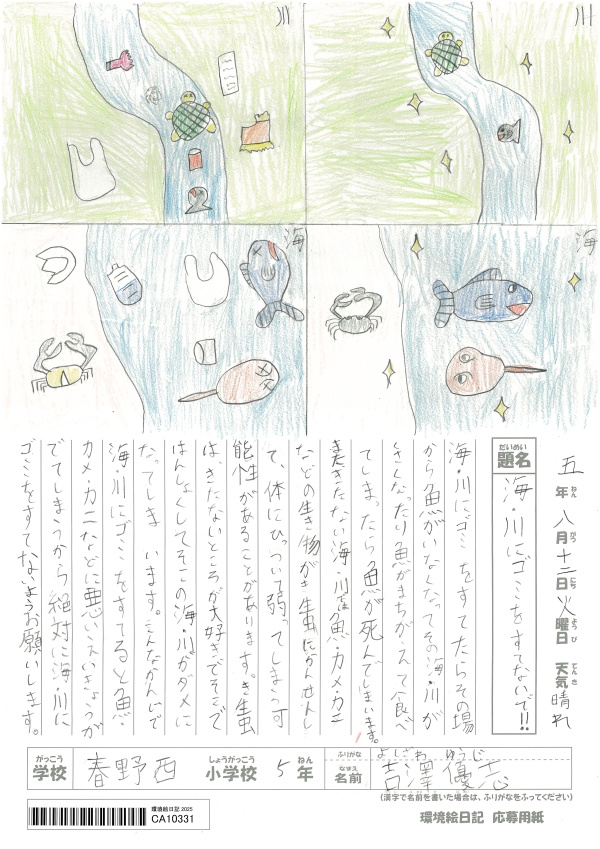 川
川
海
海
五年 八月十二日 火曜日 天気 晴れ
ねん がつ にち ようび てんき
だいめい
題名
海・川にゴミをすてないで!!
海・川にゴミをすてたらその場
から魚がいなくなってその海・川が
くさくなったり魚がまちがえて食べ
てしまったら魚が死んでしまいます。
またきたない海・川は魚・カメ・カニ
などの生き物がき生虫にかんせんし
て、体にひっついて弱ってしまう可
能性があることがあります。き生虫
は、きたないところが大好きでそこで
はんしょくしてそこの海・川がダメに
なってしまいます。こんなかんじで
海・川にゴミをすてると魚・
カメ・カニなどに悪いえいきょうが
でてしまうから絶対に海・川に
ゴミをすてないようお願いします。
がっこう
学校
春野西
しょうがっこう
小学校
5
ねん
年
ふりがな
よしざわ ゆうじ
なまえ
名前
吉澤優志
(漢字で名前を書いた場合は、ふりがなをふってください)
環境絵日記2025
CA10331
環境絵日記 応募用紙